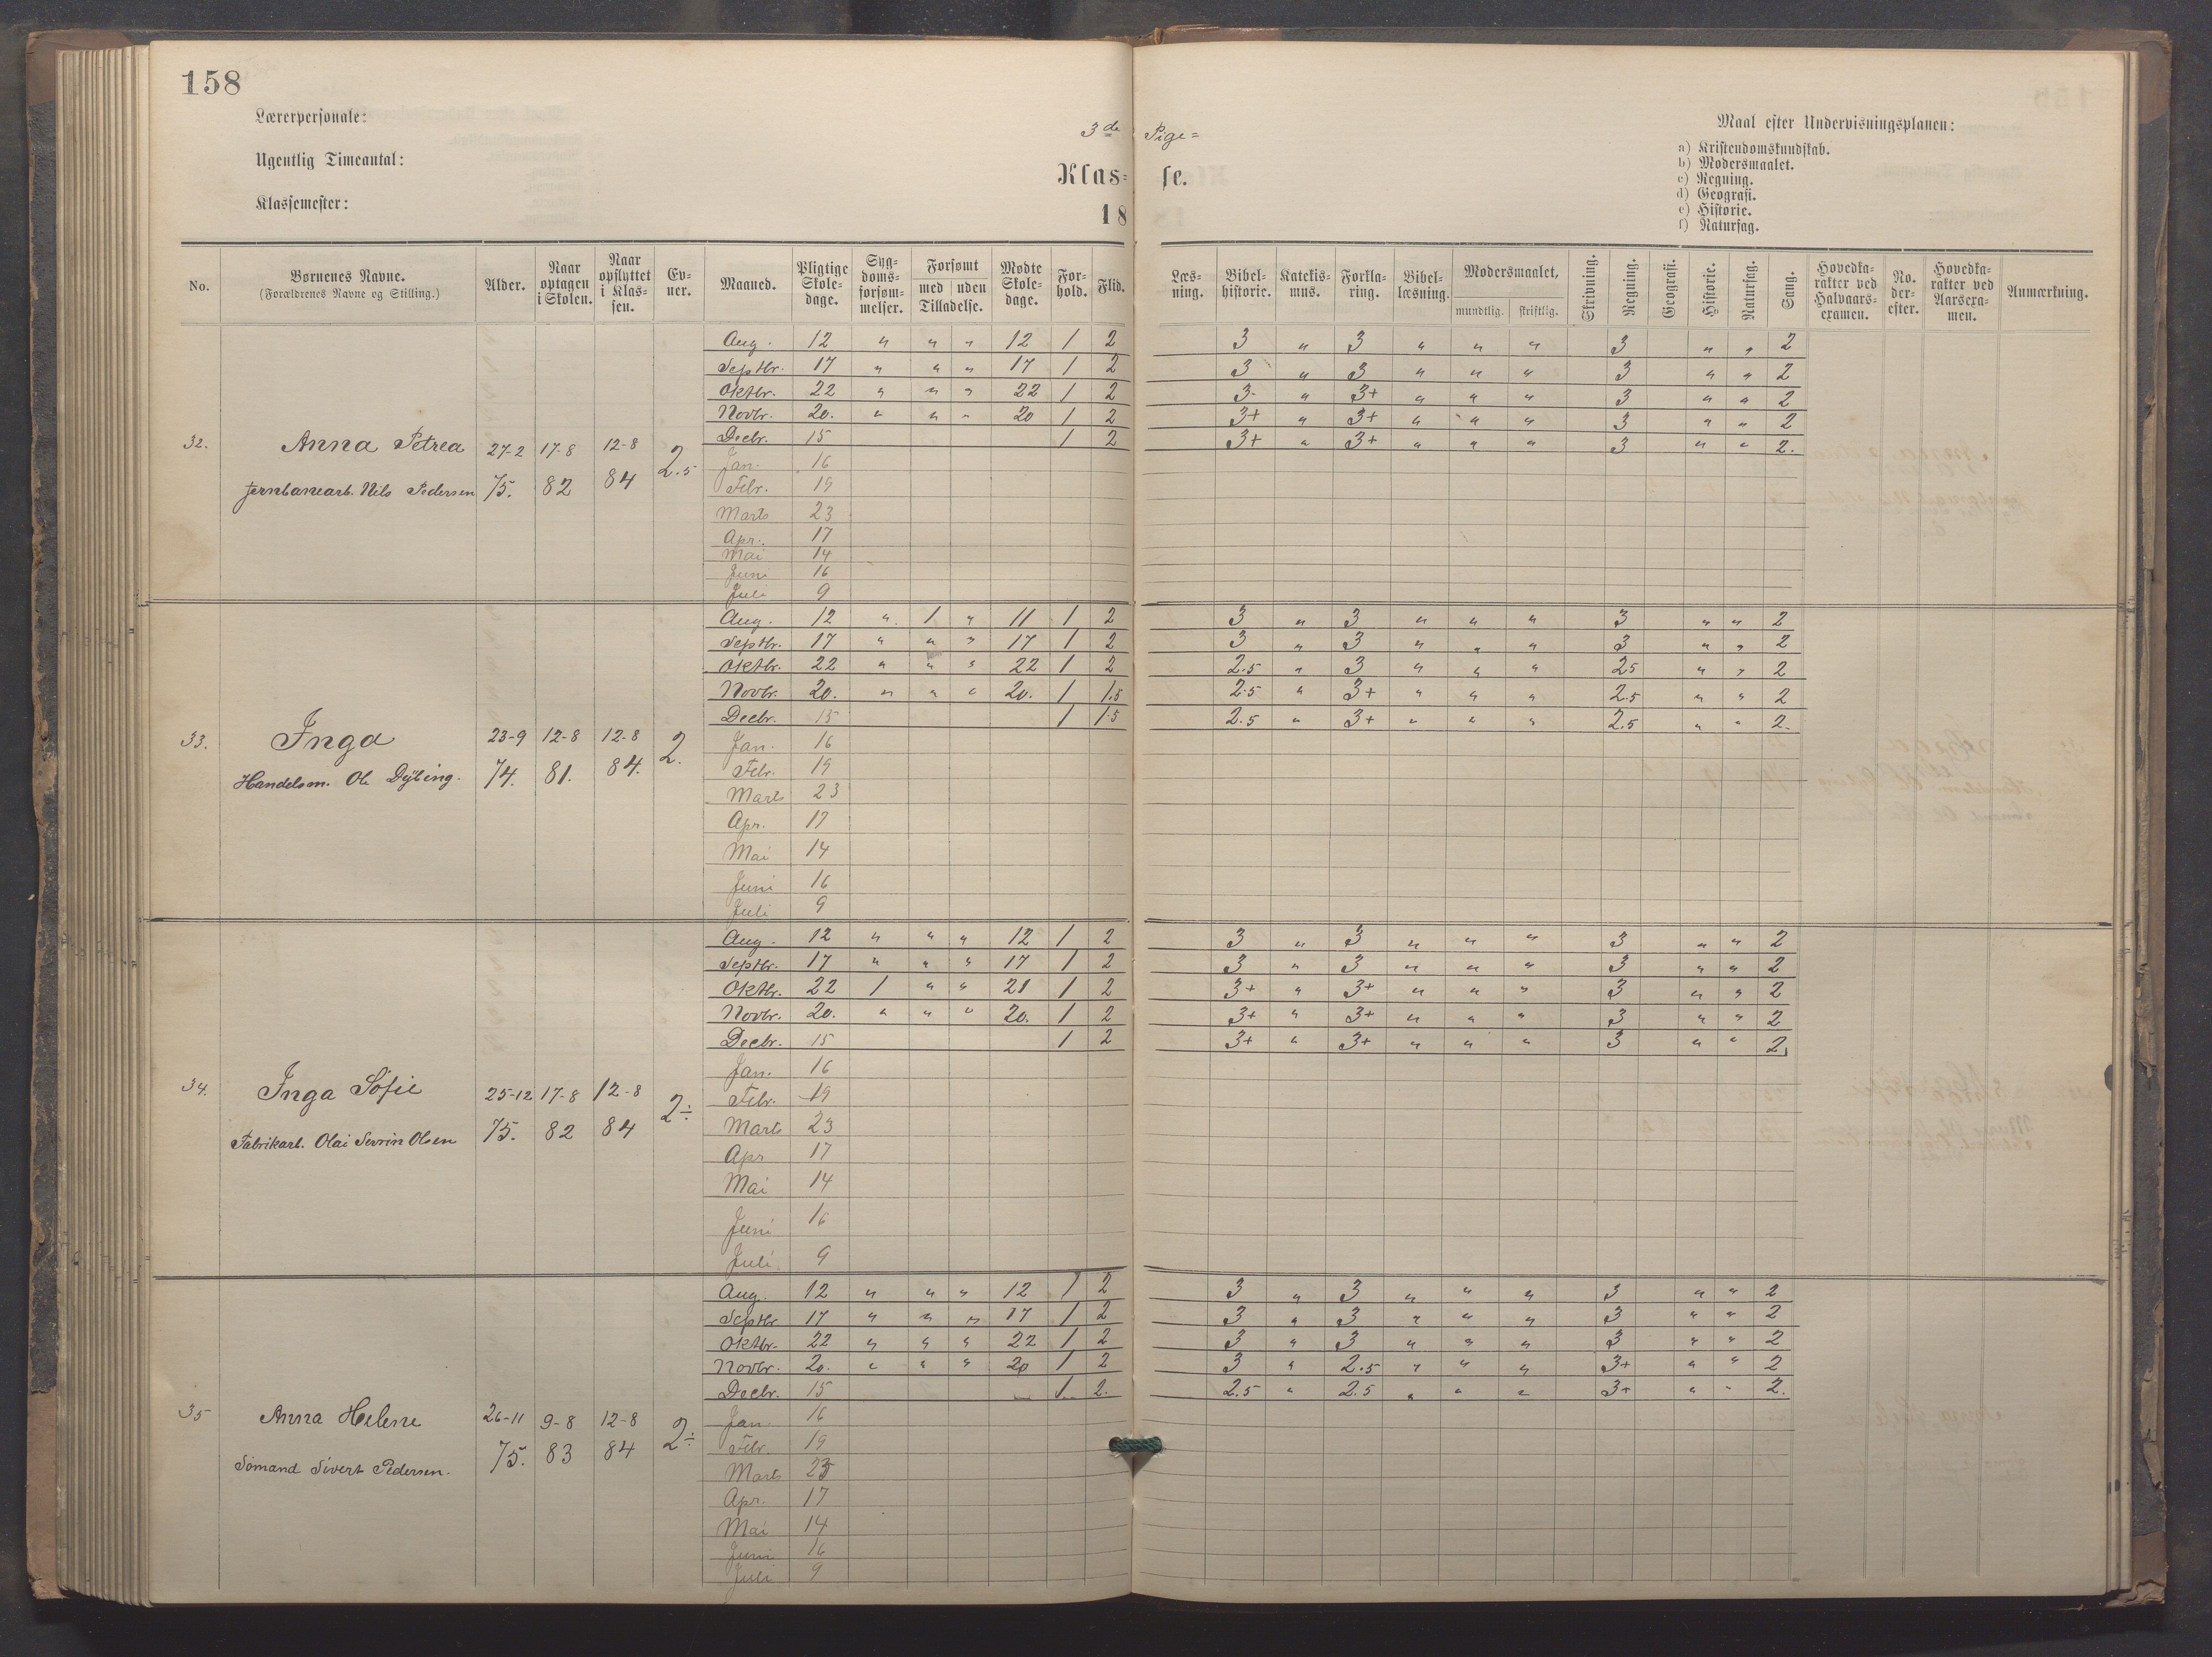 158
Lærerpersonale:
Ugentlig Timeantal:
Klassemester:
3de Pige=
Klas= se.
18
Maal efter Undervisningsplanen:
a) Kristendomskundskab.
b) Modersmaalet.
c) Regning.
d) Geografi.
e) Historie.
f) Naturfag.
No. | Børnenes Navne. (Forældrenes Navne og Stilling.) | Alder. | Naar optagen i Skolen. | Naar opflyttet i Klas= sen. | Ev= ner. | Maaned. | Pligtige Skole= dage. | Syg= doms= forsøm= melser. | Forsømt med uden Tilladelse. | Mødte Skole= dage. | For= hold. | Flid. | Læs= ning. | Bibel= historie. | Katekis= mus. | Forkla= ring. | Bibel= læsning. | Modersmaalet, mundtlig. skriftlig. | Skrivning. | Regning. | Geografi. | Historie. | Naturfag. | Sang. | Hovedka= rakter ved Halvaars= examen. | No. der= efter. | Hovedka= rakter ved Aarsexa= men. | Anmærkning.
Aug. 12 " " " 12 1 2 3 " 3 " " " 3 " " 2
Septbr. 17 " " " 17 1 2 3 " 3 " " " 3 " " 2
Oktbr. 22 " " " 22 1 2 3- " 3+ " " " 3 " " 2
Novbr. 20. " " " 20 1 2 3+ " 3+ " " " 3 " " 2
Decbr. 15 1 2 3+ " 3+ " " " 3 " " 2.
32. Anna Petrea 27-2 17-8 12-8 2.5
Jernbanearb. Nils Pedersen 75. 82 84
Jan. 16
Febr. 19
Marts 23
Apr. 17
Mai 14
Juni 16
Juli 9
Aug. 12 " 1 " 11 1 2 3 " 3 " " " 3 " " 2
Septbr. 17 " " " 17 1 2 3 " 3 " " " 3 " " 2
Oktbr. 22 " " " 22 1 2 2.5 " 3 " " " 25 " " 2
Novbr. 20. " " " 20. 1 1.5 2.5 " 3+ " " " 2.5 " " 2
Decbr. 15 1 1.5 2.5 " 3+ " " " 2.5 " " 2.
33. Inga 23-9 12-8 12-8 2.
Handelsm. Ole Dybing. 74. 81. 84.
Jan. 16
Febr. 19
Marts 23
Apr. 17
Mai 14
Juni 16
Juli 9
Aug. 12 " " " 12 1 2 3 " 3 " " " 3 " " 2
Septbr. 17 " " " 17 1 2 3 " 3 " " " 3 " " 2
Oktbr. 22 1 " " 21 1 2 3+ " 3+ " " " 3 " " 2
Novbr. 20. " " " 20. 1 2 3+ " 3+ " " " 3 " " 2
Decbr. 15 1 2 3+ " 3+ " " " 3 " " 2
34. Inga Sofie 25-12 17-8 12-8 2÷
Fabrikarb. Olai Serrin Olsen 75. 82 84
Jan. 16
Febr. 19
Marts 23
Apr 17
Mai 14
Juni 16
Juli 9
Aug. 12 " " " 12 1 2 3 " 3 " " " 3 " " 2
Septbr 17 " " " 17 1 2 3 " 3 " " " 3 " " 2
Oktbr. 22 " " " 22 1 2 3 " 3 " " " 3 " " 2
Novbr. 20. " " " 20 1 2 3 " 2.5 " " " 3+ " " 2
Decbr. 15 1 2. 2.5 " 2.5 " " " 3+ " " 2.
35 Anna Helene 26-11 9-8 12-8 2÷
Sømand Sivert Pedersen. 75. 83 84
Jan. 16
Febr. 19
Marts 23
Apr. 17
Mai 14
Juni 16
Juli 9